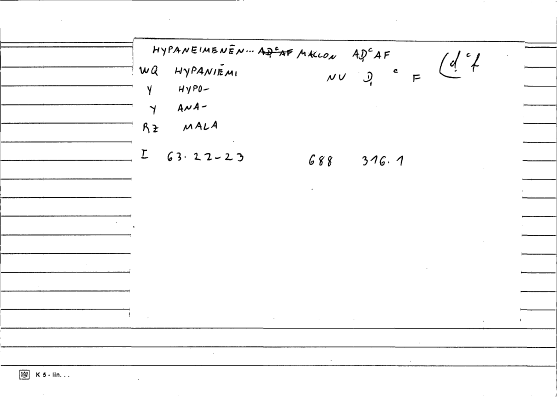 HYPANEIMENĒN... ADᶜAF MALLON AḌᶜAF (ḍᶜf
WQ HYPANIĒMI NV Ḍ ᶜ F
Y HYPO-
Y ANA-
RZ MALA
I 63.22-23 688 316.1
K 5 - lin. . .